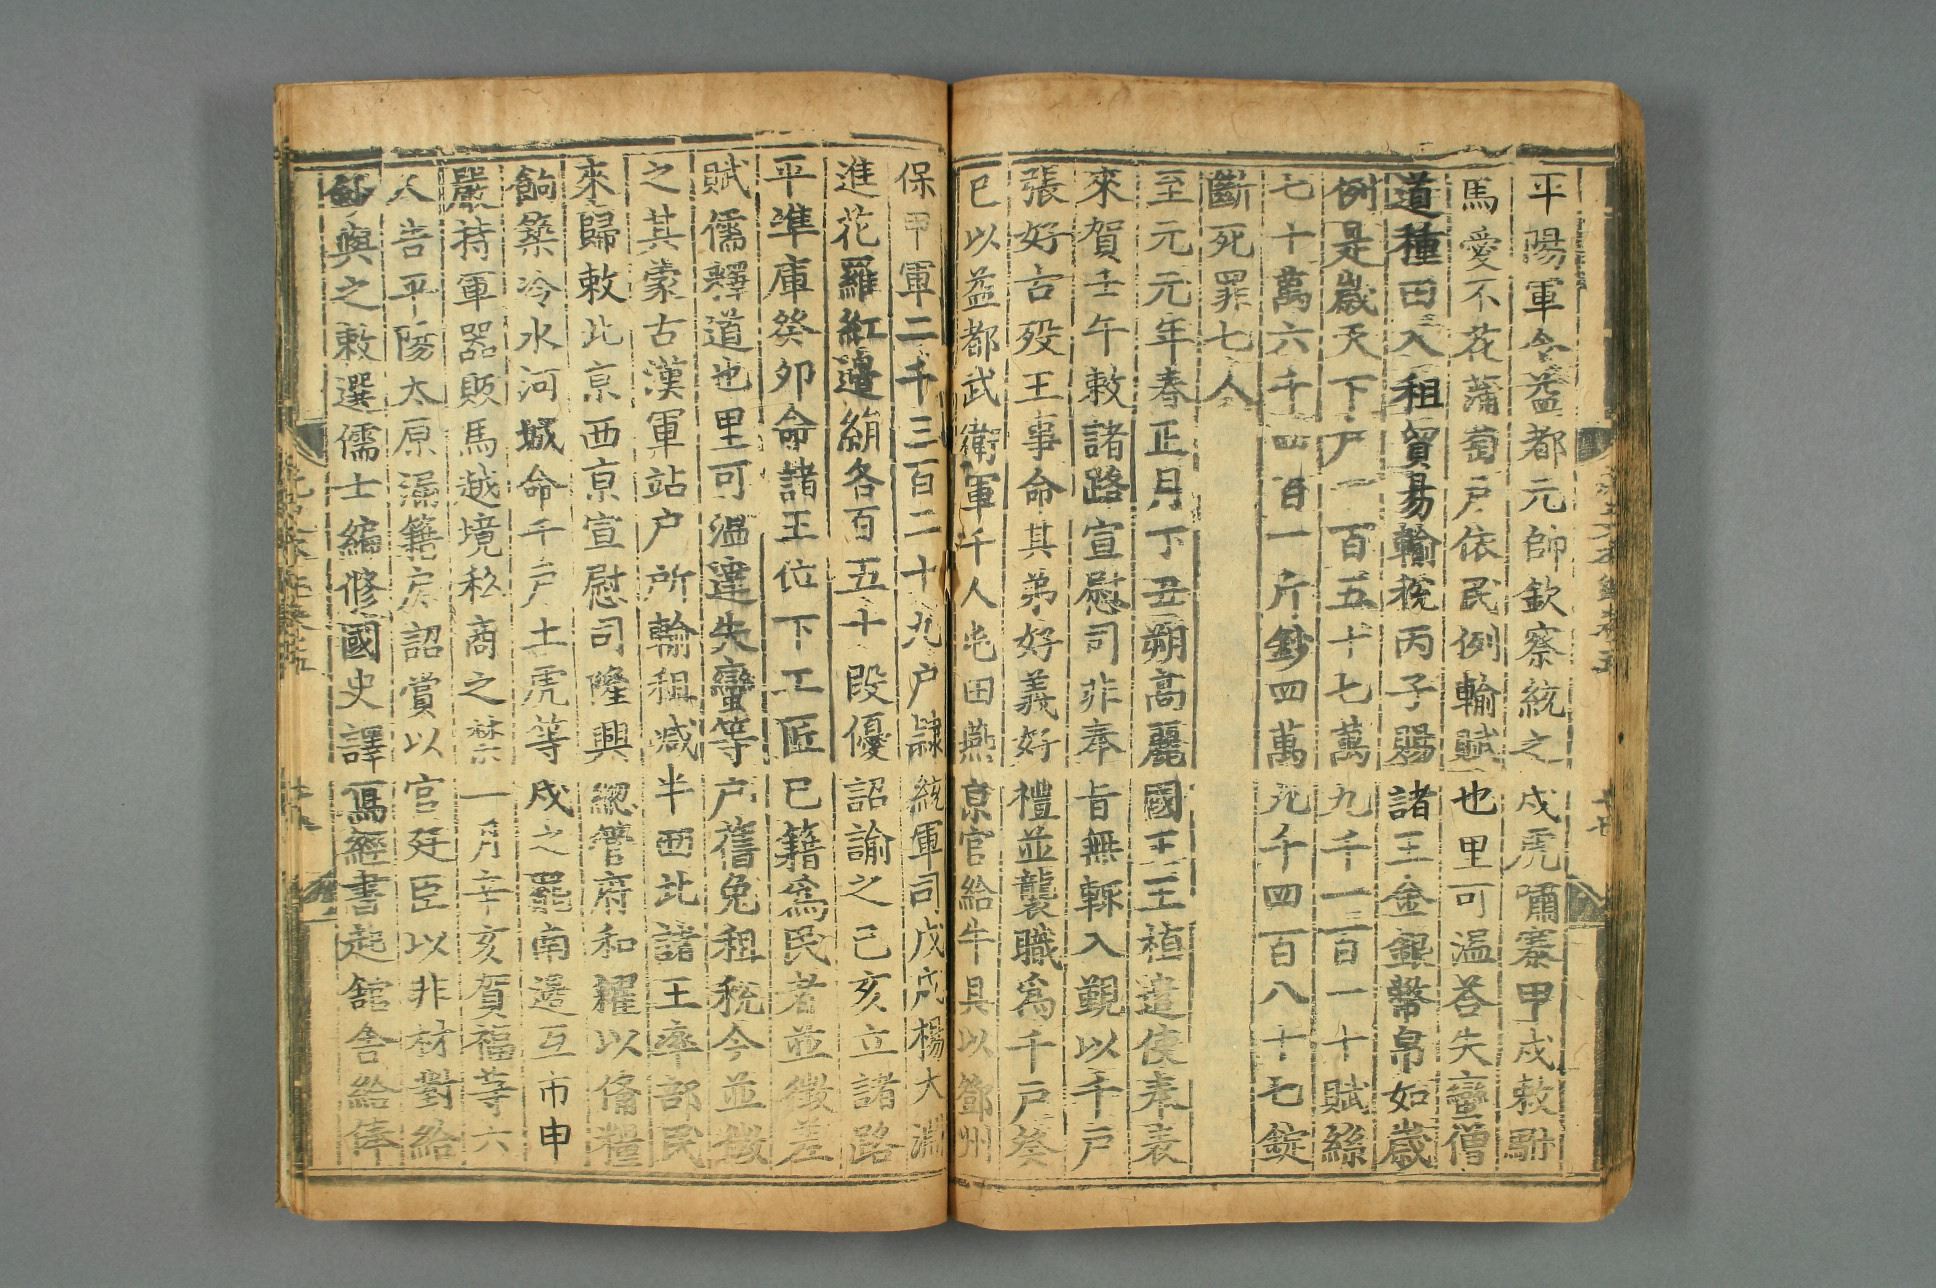 平陽軍令益都元帥欽察統之戍虎嘯寨甲戌敕駙
馬愛不花蒲萄戶依民例輸賦也里可溫荅失蠻僧
道種田入租貿易輸稅丙子賜諸王金銀幣帛如歲
例是歲天下戶一百五十七萬九千一百一十賦絲
七十萬六千四百一斤鈔四萬九千四百八十七錠
斷死罪七人
至元元年春正月丁丑朔高麗國王王植遣使奉表
來賀壬午敕諸路宣慰司非奉旨無輒入覲以千戶
張好古歿王事命其弟好義好禮並襲職爲千戶癸
巳以益都武衛軍千人屯田燕京官給牛具以鄧州
保甲軍二千三百二十九戶隸統軍司戊戌楊大淵
進花羅紅邊絹各百五十段優詔諭之己亥立諸路
平準庫癸卯命諸王位下工匠已籍爲民者並徵差
賦儒釋道也里可溫達失蠻等戶舊免租稅今並徵
之其蒙古漢軍站户所輸租减半西北諸王率部民
來歸敕北京西京宣慰司隆興緫管府和糴以備糧
餉築冷水河城命千戶土虎等戍之罷南邊互市申
嚴持軍器販馬越境私商之禁二月辛亥賀福等六
人告平陽太原漏籍戶詔賞以官廷臣以非材對給
鈔與之敕選儒士編修國史譯寫經書起舘舍給俸